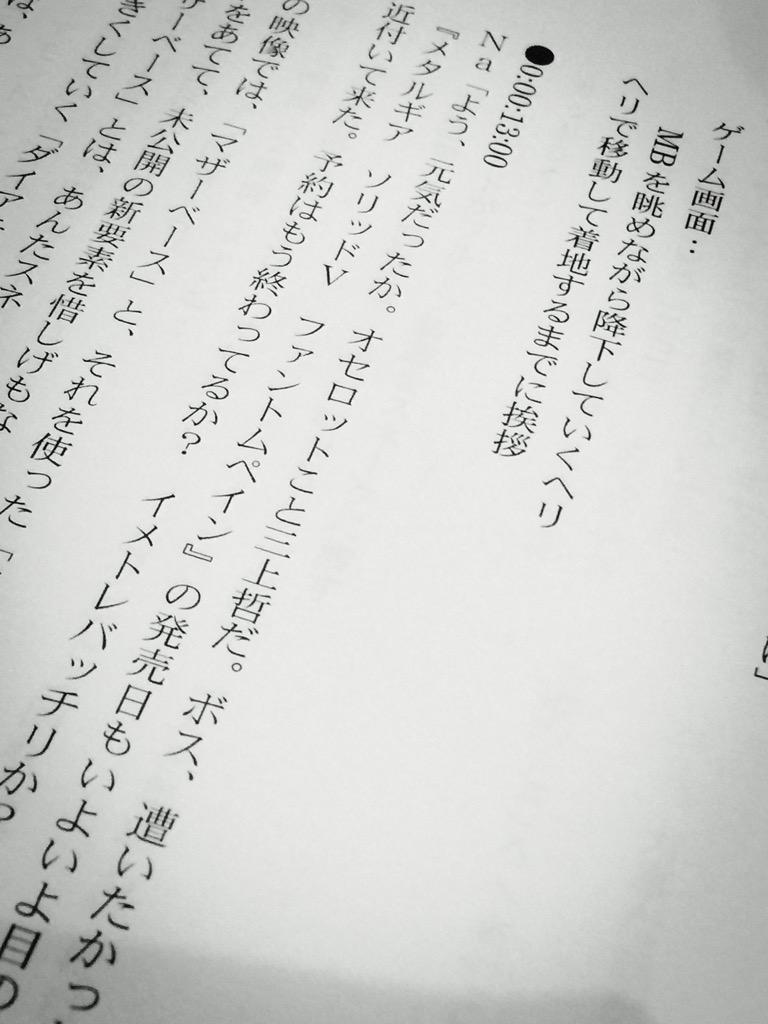 ゲーム画面：
MBを眺めながら降下していくヘリ
ヘリで移動して着地するまでに挨拶
●0:00:13:00
Na「よう、元気だったか。オセロットこと三上哲だ。ボス、遭いたかっ
『メタルギア ソリッドV ファントムペイン』の発売日もいよいよ目の
近付いて来た。予約はもう終わってるか？ イメトレバッチリかっ
の映像では、「マザーベース」と、それを使った「
をあてて、未公開の新要素を惜しげもな
ザーベース」とは、あんたスネ
きくしていく「ダイア
は、あ